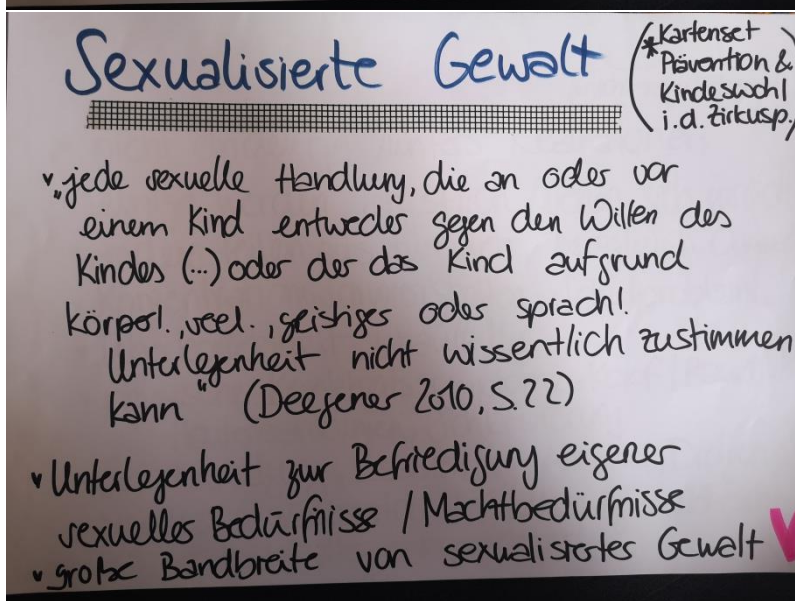 Sexualisierte Gewalt
(*Kartenset
Prävention &
Kindeswohl
i.d. Zirkusp.)
"jede sexuelle Handlung, die an oder vor
einem Kind entweder gegen den Willen des
Kindes (...) oder der das Kind aufgrund
körperl., seel., geistiger oder sprachl.
Unterlegenheit nicht wissentlich zustimmen
kann" (Deegener 2010, S. 22)
Unterlegenheit zur Befriedigung eigener
sexueller Bedürfnisse / Machtbedürfnisse
große Bandbreite von sexualisierter Gewalt